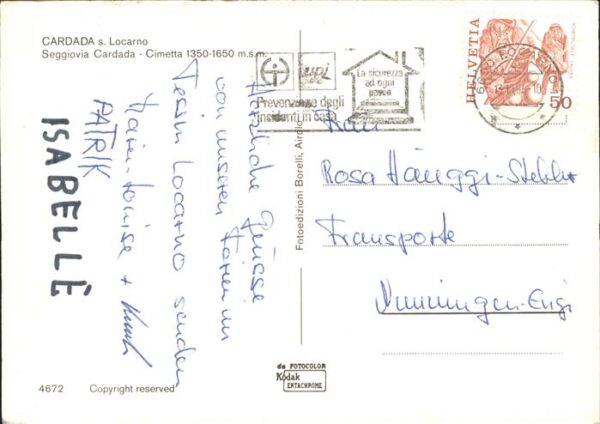 CARDADA s. Locarno
Seggiovia Cardada - Cimetta 1350-1650 m.s.m.
Herzliche Grüsse
von unseren Ferien im
Tessin Locarno senden
Marie-Louise +
PATRIK
ISABELLE
upi
Prevenzione degli
incidenti in casa
La sicurezza
ad ogni
passo
HELVETIA
50
6600 LOCARNO
Frau
Rosa Hänggi-Stebler
Transporte
Nunningen-Engi
Fotoedizioni Borelli, Airolo
da FOTOCOLOR
Kodak
EKTACHROME
4672 Copyright reserved